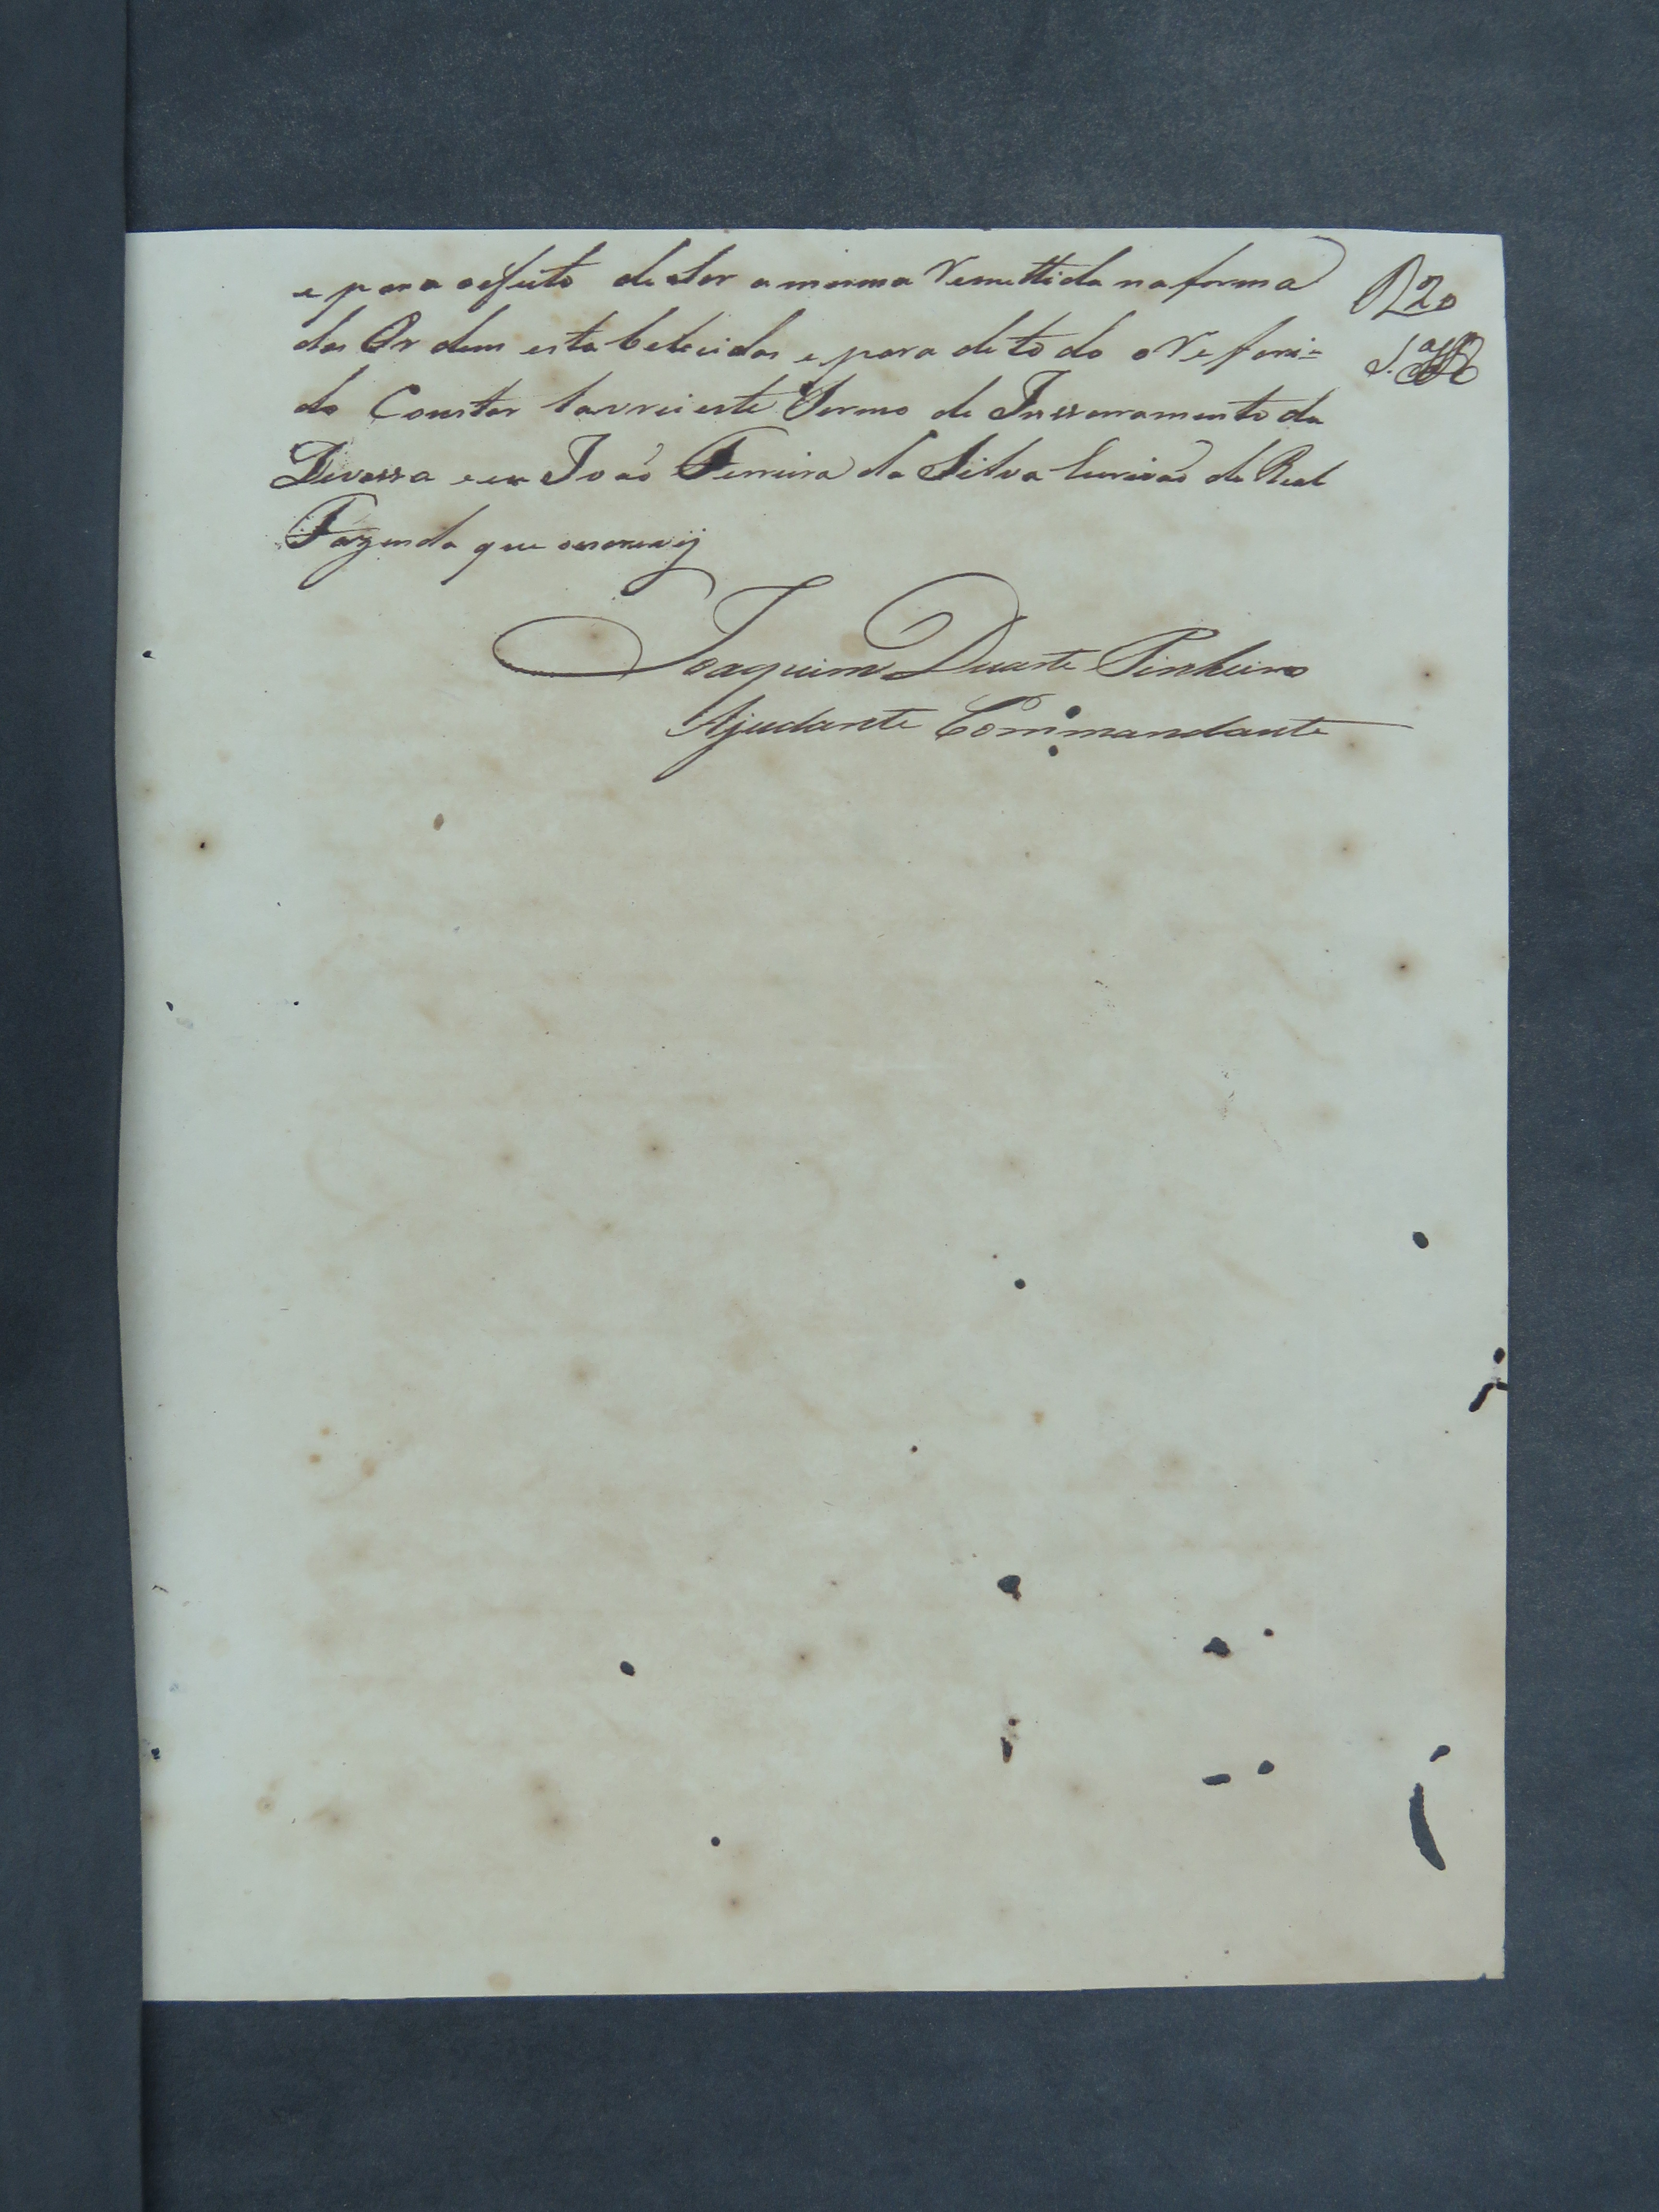 e para oefeito de Ser amesma Remettida na forma
das Ordens estabelecidas e para de todo o Referi=
do Constar lavrei este Termo de Inserramento da
Devassa e eu João Ferreira da Silva Escrivaõ da Real
Fazenda que oescrevÿ
Joaquim Duarte Pinheiro
Ajudante Commandante
20